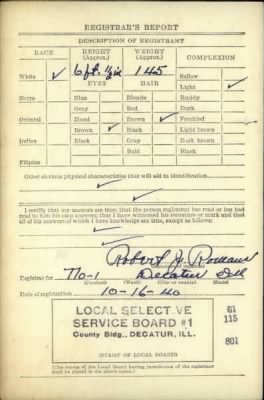 REGISTRAR'S REPORT
DESCRIPTION OF REGISTRANT
RACE HEIGHT (Approx.) WEIGHT (Approx.) COMPLEXION
White ✓ 6 ft. 145 Sallow
EYES HAIR Light ✓
Negro Blue Blonde Ruddy
Gray Red Dark
Oriental Hazel Brown ✓ Freckled
Brown ✓ Black Light brown
Indian Black Gray Dark brown
Bald Black
Filipino
Other obvious physical characteristics that will aid in identification
✓
✓
I certify that my answers are true; that the person registered has read or has had
read to him his own answers; that I have witnessed his signature or mark and that
all of his answers of which I have knowledge are true, except as follows:
✓
✓
Robert J.
Registrar for 770-1 Decatur Ill
(Precinct) (Ward) (City or county) (State)
Date of registration 10-16-40
LOCAL SELECTIVE
SERVICE BOARD #1
County Bldg., DECATUR, ILL.
61
115
801
(STAMP OF LOCAL BOARD)
(The stamp of the Local Board having jurisdiction of the registrant
shall be placed in the above space.)